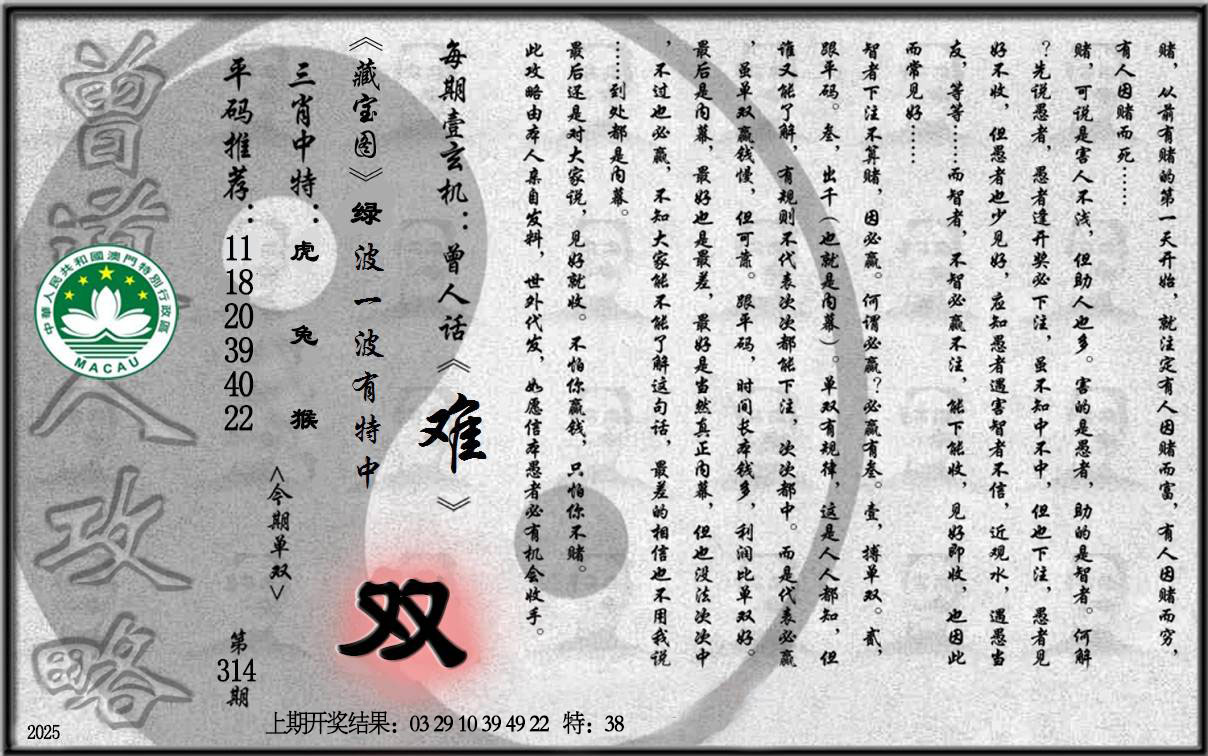 赌，从前有赌的第一天开始，就注定有人因赌而富，有人因赌而穷，
有人因赌而死……
赌，可说是害人不浅，但助人也多。害的是愚者，助的是智者。何解
？先说愚者，愚者逢开奖必下注，虽不知中不中，但也下注，愚者见
好不收，但愚者也少见好，应知愚者遇害智者不信，近观水，遇愚当
友，等等……而智者，不智必赢不注，能下能收，见好即收，也因此
而常见好……
智者下注不算赌，因必赢。何谓必赢？必赢有叁。壹，搏单双。贰，
跟平码。叁，出千（也就是内幕）。单双有规律，这是人人都知，但
谁又能了解，有规则不代表次次都能下注，次次都中。而是代表必赢
，虽单双赢钱慢，但可靠。跟平码，时间长本钱多，利润比单双好。
最后是内幕，最好也是最差，最好是当然真正内幕，但也没法次次中
，不过也必赢，不知大家能不能了解这句话，最差的相信也不用我说
……到处都是内幕。
最后还是对大家说，见好就收。不怕你赢钱，只怕你不赌。
此攻略由本人亲自发料，世外代发，如愿信本愚者必有机会收手。
每期壹玄机：曾人话《难》
《藏宝图》绿波一波有特中
双
三肖中特：虎 兔 猴
<今期单双>
平码推荐：11 18 20 39 40 22
第314期
曾道人攻略
中華人民共和國澳門特別行政區
MACAU
上期开奖结果：03 29 10 39 49 22 特：38
2025